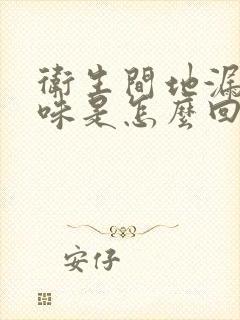 衛生間地漏
味是怎麼回
安仔